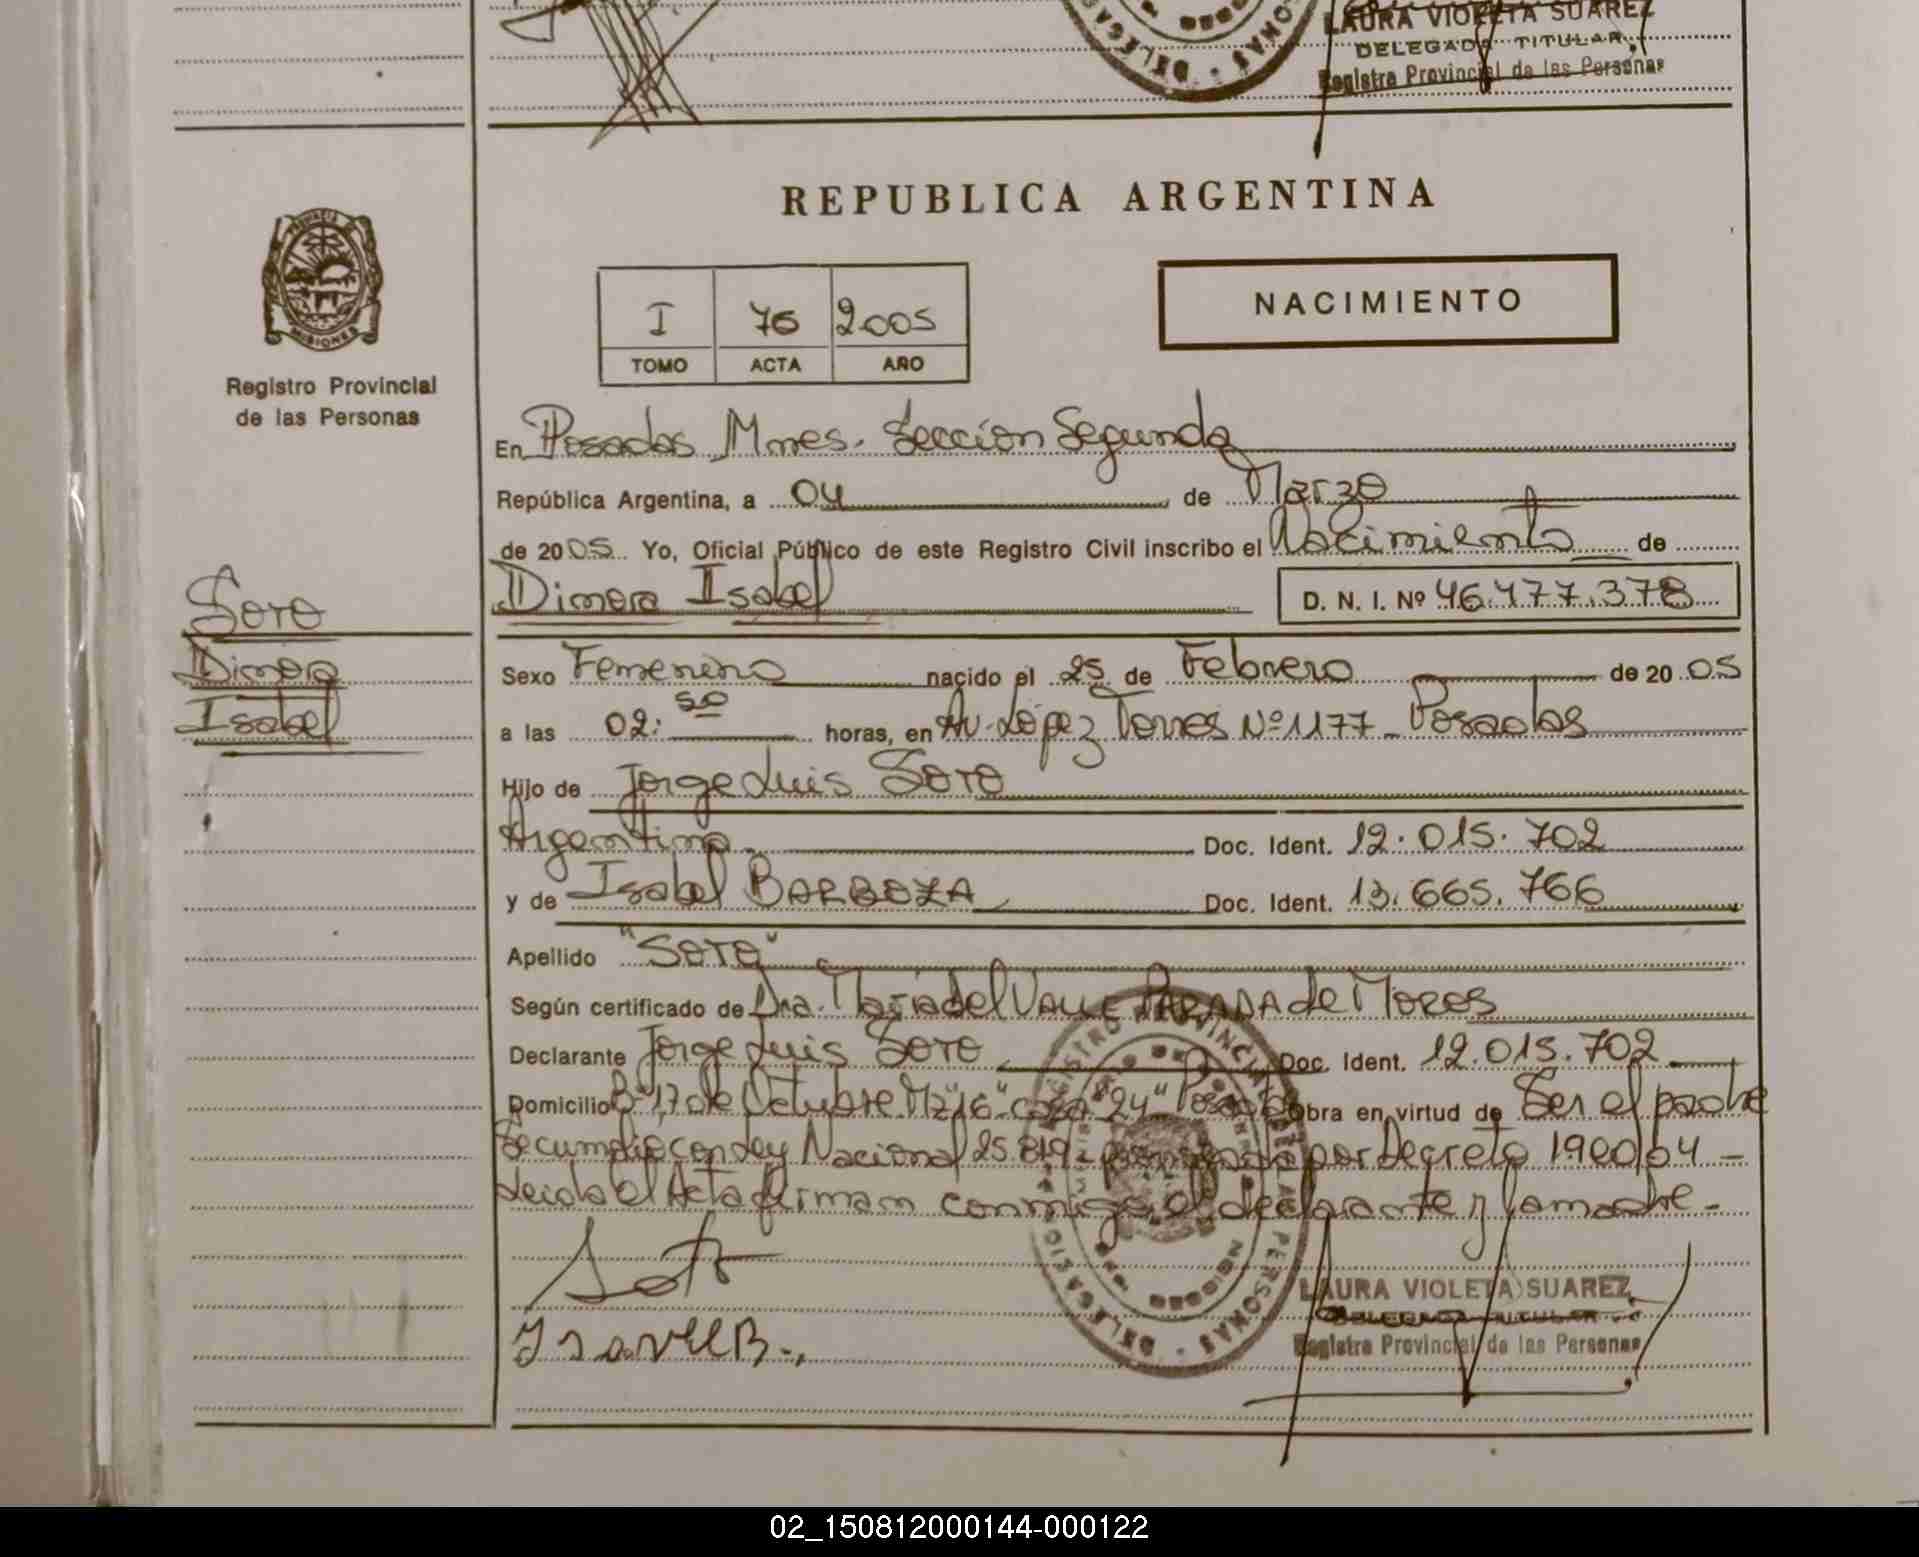 LAURA VIOLETA SUAREZ
DELEGADA TITULAR
Registro Provincial de las Personas
REPUBLICA ARGENTINA
PROVINCIA
MISIONES
Registro Provincial
de las Personas
I 76 2005
TOMO ACTA AÑO
NACIMIENTO
En Posadas Mnes. Sección Segunda
República Argentina, a 04 de Marzo
de 2005 Yo, Oficial Público de este Registro Civil inscribo el Nacimiento de
Dimora Isabel D. N. I. Nº 46.477.378
SOTO
Dimora
Isabel
Sexo Femenino nacido el 25 de Febrero de 20 05
a las 02:50 horas, en Av. López Torres Nº 1177 - Posadas
Hijo de Jorge Luis SOTO
Argentino Doc. Ident. 12.015.702
y de Isabel BARBOZA Doc. Ident. 13.665.766
Apellido "SOTO"
Según certificado de Dra. María del VALLE PARADA de MORES
Declarante Jorge Luis SOTO Doc. Ident. 12.015.702
Domicilio Bº 17 de Octubre Mz "16" casa "24" Posadas Obra en virtud de Ser el padre
Se cumplió con Ley Nacional 25.819 - por Decreto 1900/04 -
Leida el Acta firman conmigo el declarante y la madre -
Soto
IsavelB.
LAURA VIOLETA SUAREZ
DELEGADA TITULAR
Registro Provincial de las Personas
02_150812000144-000122